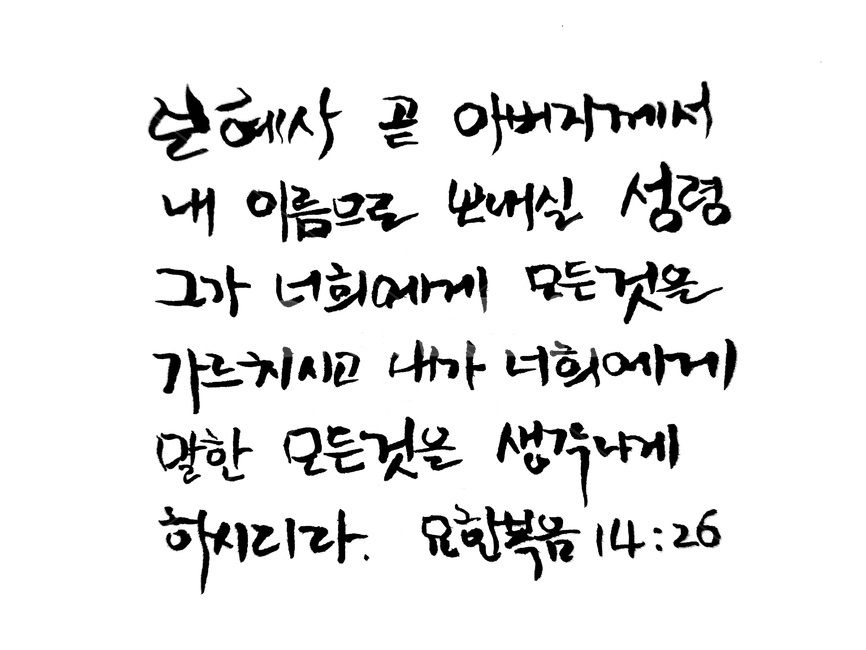 보혜사 곧 아버지께서
내 이름으로 보내실 성령
그가 너희에게 모든것을
가르치시고 내가 너희에게
말한 모든것을 생각나게
하시리라. 요한복음 14:26